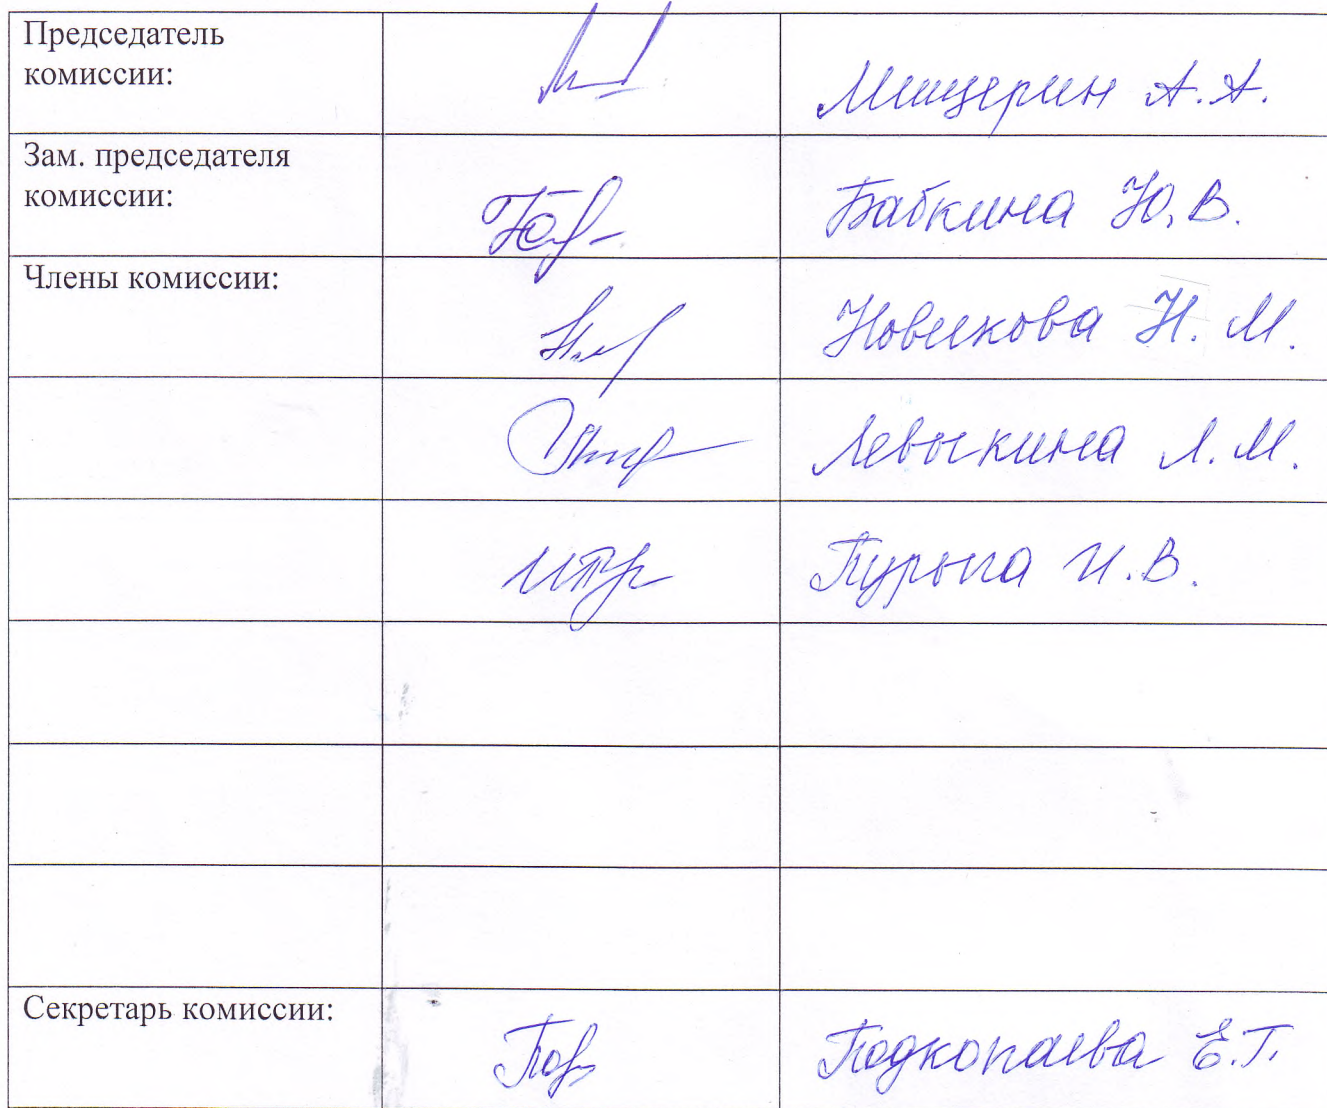 Председатель
комиссии:
Мищерин А.А.
Зам. председателя
комиссии:
Бабкина Ю.В.
Члены комиссии:
Новикова Н.М.
Левыкина Л.М.
Турыпа И.В.
Секретарь комиссии:
Подкопаева Е.Г.